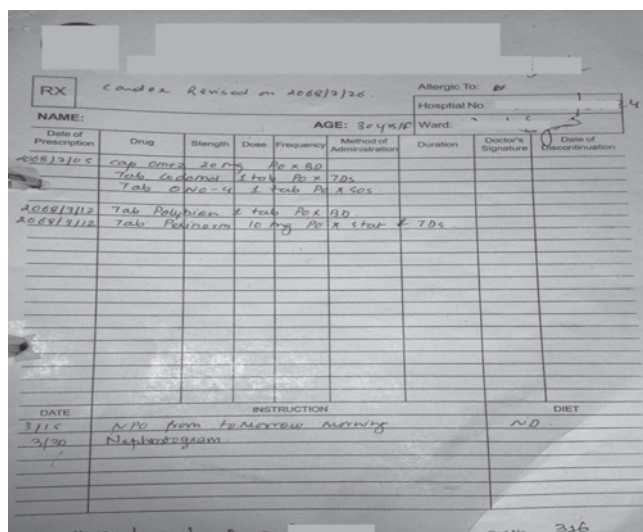 RX Cardex Revised on 2068/2/26 Allergic To:
Hosptial No.
NAME: AGE: 30yrs/F Ward:
Date of Prescription Drug Stength Dose Frequency Method of Administration Duration Doctor's Signature Date of Discontinuation
2068/2/05 Cap Omez 20 mg Po x BD
Tab 1 tab Po x TDs
Tab 1 tab Po x SOS
2068/3/12 Tab Polybion 1 tab Po x BD
2068/3/12 Tab Perinorm 10 mg Po x stat & TDs.
DATE INSTRUCTION DIET
NPO from tomorrow morning ND.
3/30 Nephrotogram.
316